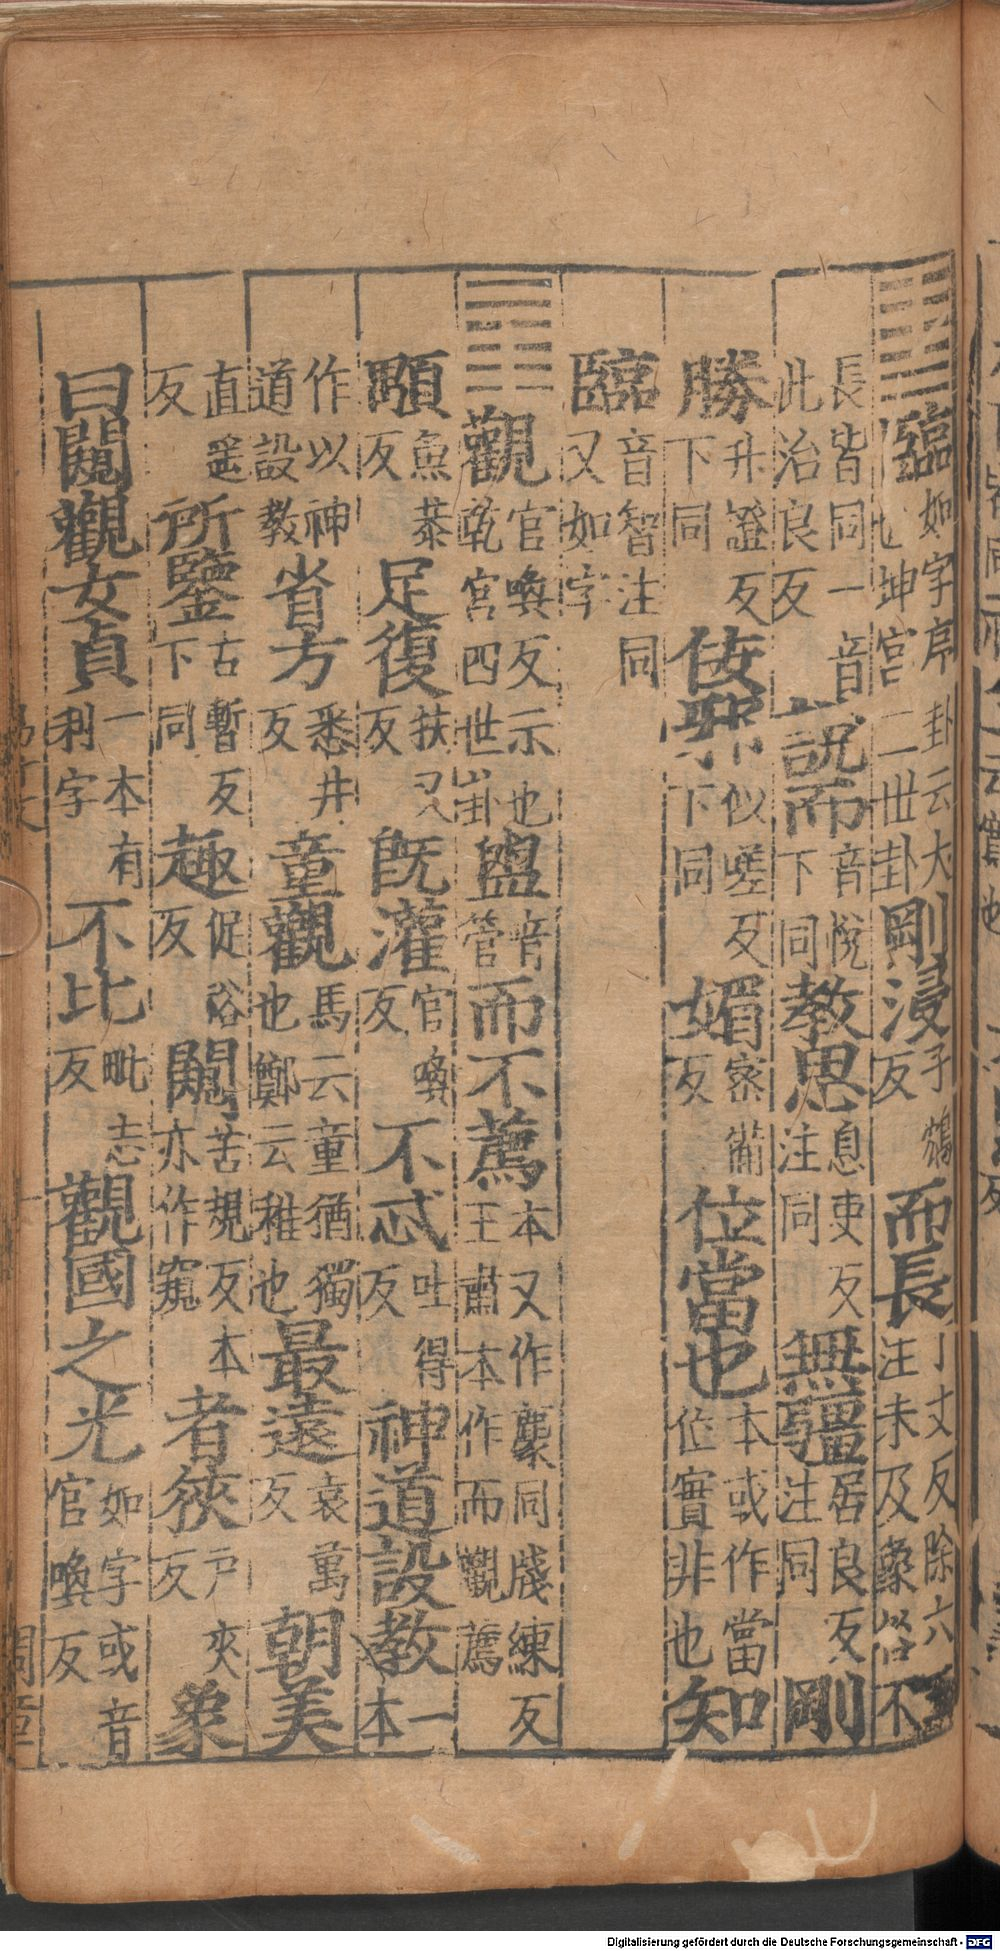 ䷒臨如字序卦云大也坤宮二世卦剛浸子鴆反而長丁丈反除六三注末及象咎不
長皆同一音此治良反說而音悅下同教思息吏反注同無疆居良反注同剛
勝升證反下同佞邪似嗟反下同媚密備反位當也本或作當位實非也知
臨音智注同又如字
䷓觀官喚反示也乾宮四世卦盥音管而不薦本又作𢊁同牋練反王肅本作而觀薦
顒魚恭反足復扶又反旣灌官喚反不忒吐得反神道設教一本
作以神道設教省方悉井反童觀馬云童猶獨也鄭云稚也最遠袁萬反朝美
直遥反所鑒古暫反下同趣促俗反闚苦規反本亦作窺者狹戶夾反象
曰闚觀女貞一本有利字不比毗志反觀國之光如字或音官喚反
Digitalisierung gefördert durch die Deutsche Forschungsgemeinschaft - DFG